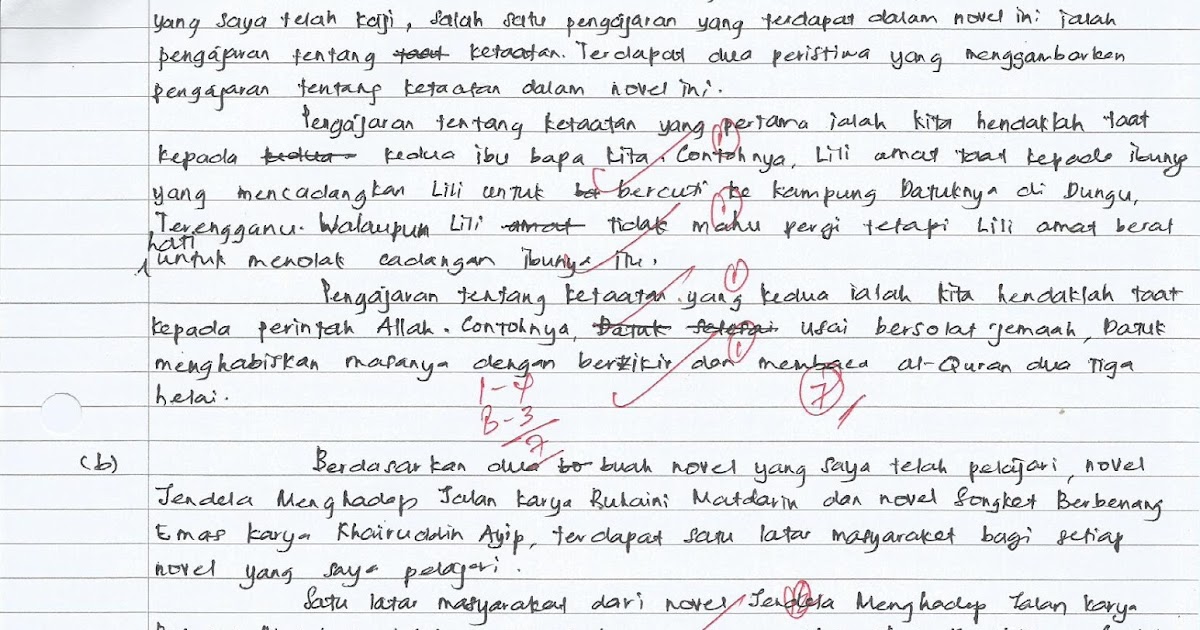 yang saya telah kaji, salah satu pengajaran yang terdapat dalam novel ini ialah
pengajaran tentang taat ketaatan. Terdapat dua peristiwa yang menggambarkan
pengajaran tentang ketaatan dalam novel ini.
Pengajaran tentang ketaatan yang pertama ialah kita hendaklah taat
kepada kedua kedua ibu bapa kita. Contohnya, Lili amat taat kepada ibunya
yang mencadangkan Lili untuk bercuti ke kampung Datuknya di Dungu,
Terengganu. Walaupun Lili amat tidak mahu pergi tetapi Lili amat berat
hati
untuk menolak cadangan ibunya itu.
Pengajaran tentang ketaatan yang kedua ialah kita hendaklah taat
kepada perintah Allah. Contohnya, Datuk selesai usai bersolat jemaah, Datuk
menghabiskan masanya dengan berzikir dan membaca al-Quran dua tiga
helai.
1-4
B-3
7
7
(b) Berdasarkan dua bo buah novel yang saya telah pelajari, novel
Jendela Menghadap Jalan karya Ruhaini Matdarin dan novel Songket Berbenang
Emas karya Khairuddin Ayip, terdapat satu latar masyarakat bagi setiap
novel yang saya pelajari.
Satu latar masyarakat dari novel Jendela Menghadap Jalan karya